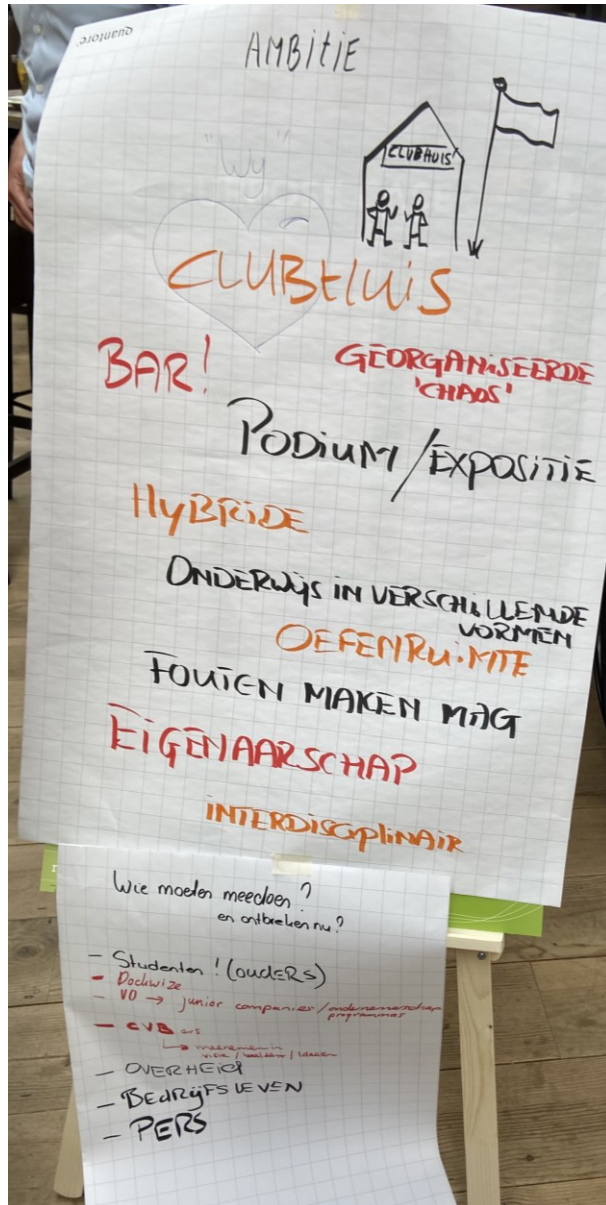 quantore
AMBITIE
"Wy"
CLUBHUIS
CLUBHUIS
BAR!
GEORGANISEERDE
'CHAOS'
PODIUM/EXPOSITIE
HYBRIDE
ONDERWIJS IN VERSCHILLENDE
VORMEN
OEFENRUIMTE
FOUTEN MAKEN MAG
EIGENAARSCHAP
INTERDISCIPLINAIR
Wie moeten meedoen?
en ontbreken nu?
- Studenten! (OUDERS)
- Dockwize
- VO → junior companies/ondernemerschap
programmas
- CVB ers
↳ meenemen in
visie / beelden / ideeën
- OVERHEID
- BEDRIJFSLEVEN
- PERS